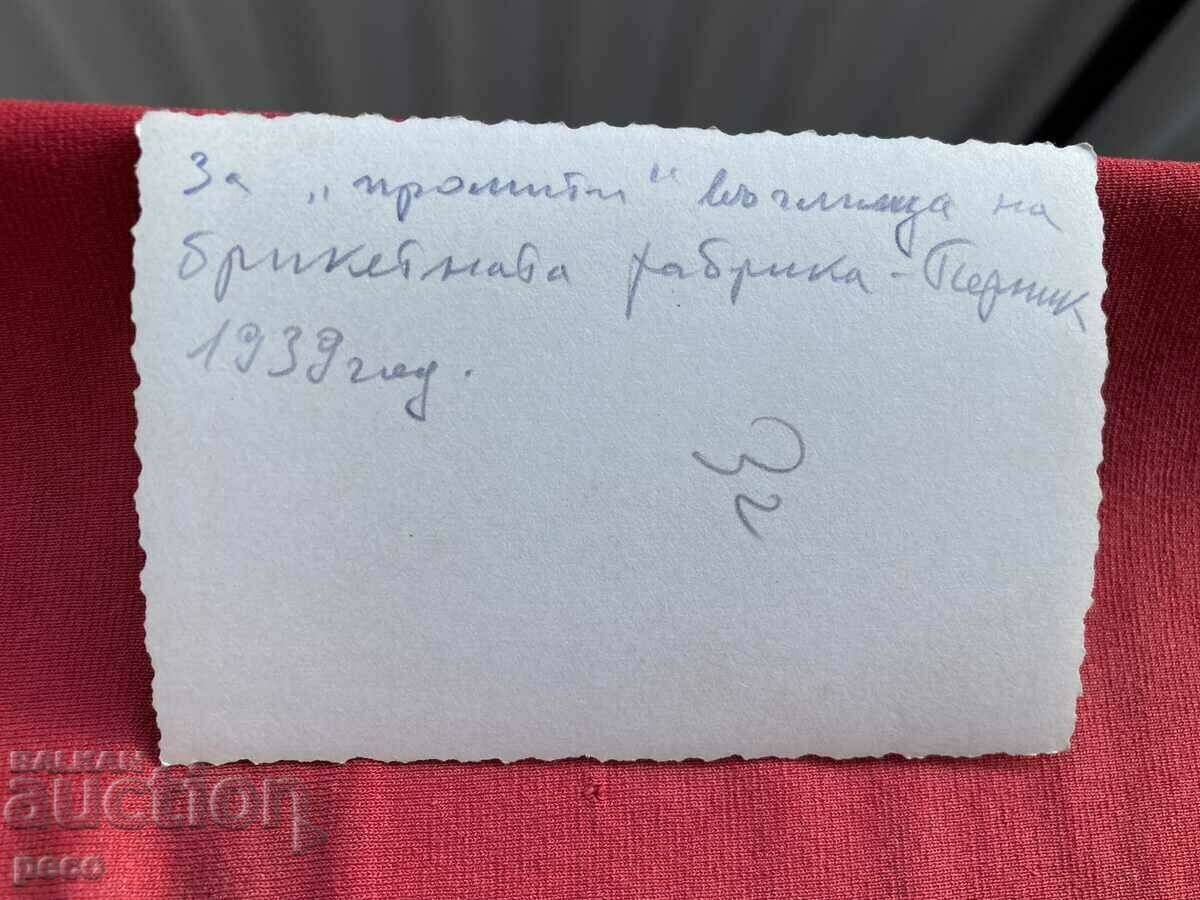 За „промити" въглища на
брикетната фабрика - Перник
1939 год.
32
BALKAN
auction
peco